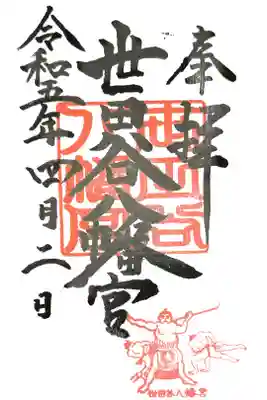 奉拝
世田谷八幡宮
令和五年四月二日
世田谷八幡宮
世田谷八幡宮